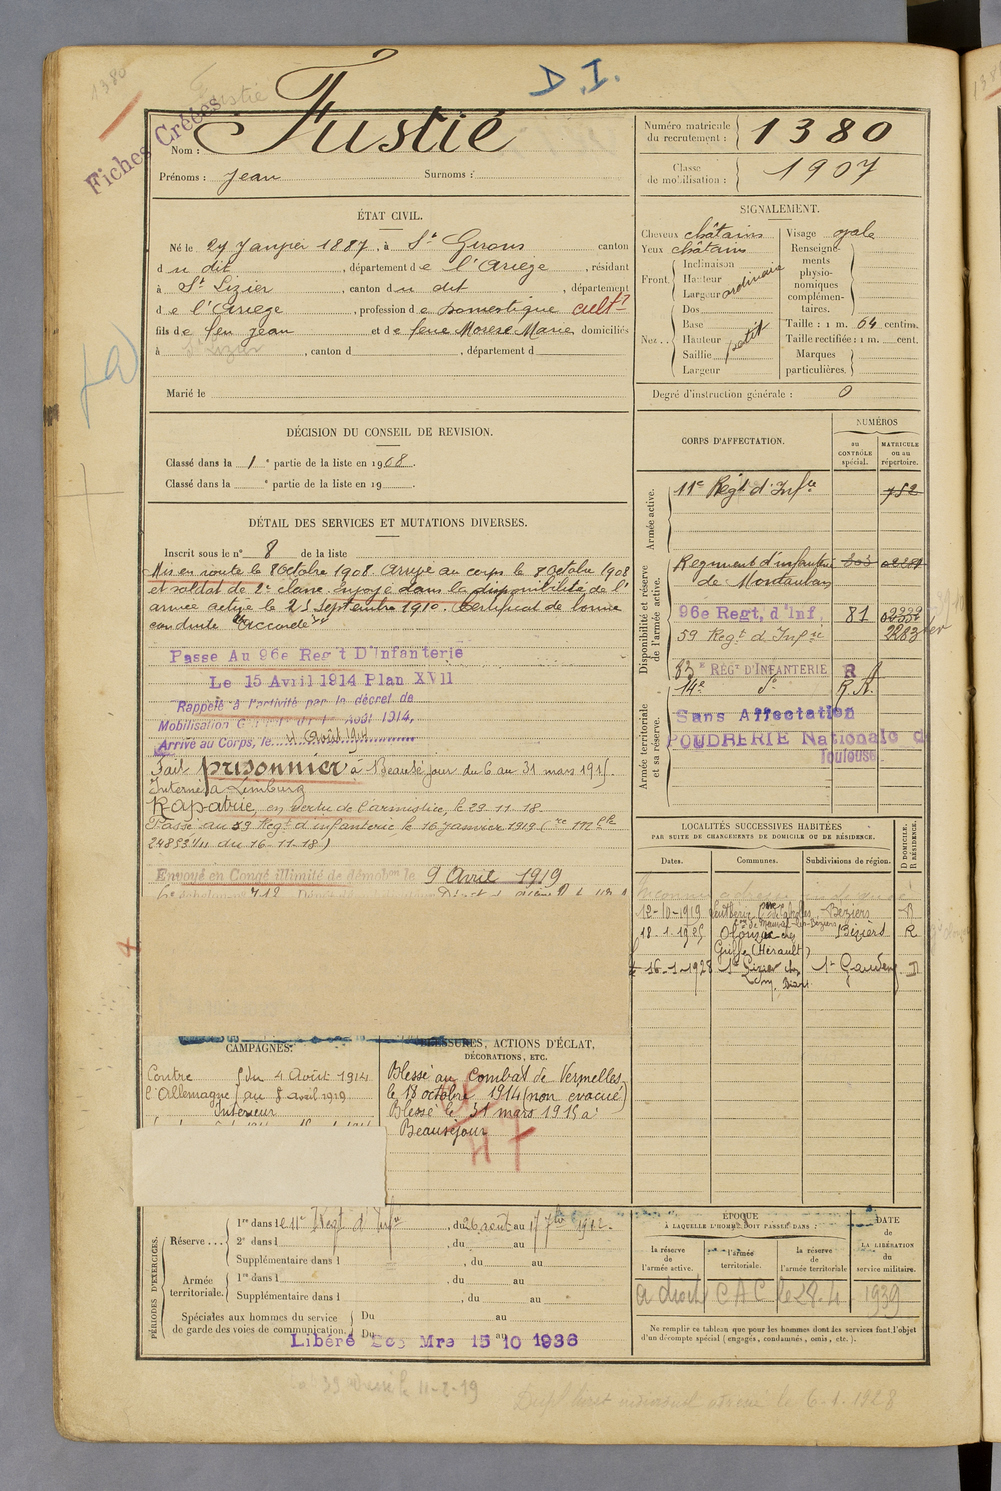 1380
Fustié
D. I.
Fiches Créées
Nom : Fustié
Prénoms : Jean Surnoms :
Numéro matricule du recrutement : 1380
Classe de mobilisation : 1907
ÉTAT CIVIL.
Né le 27 Janvier 1887, à St Girons canton
du dit, département de l'Ariège, résidant
à St Lizier, canton du dit, département
de l'Ariège, profession de domestique cult r
fils de feu Jean et de feue Marie domiciliés
à St Lizier, canton d , département d
Marié le
SIGNALEMENT.
Cheveux châtains
Yeux châtains
Front
Inclinaison
Hauteur
Largeur
Dos
ordinaire
Nez
Base
Hauteur
Saillie
Largeur
petit
Visage ovale
Renseignements physionomiques complémentaires.
Taille : 1 m. 64 centim.
Taille rectifiée : 1 m. cent.
Marques particulières.
Degré d'instruction générale : 0
DÉCISION DU CONSEIL DE REVISION.
Classé dans la 1e partie de la liste en 1908.
Classé dans la e partie de la liste en 19
DÉTAIL DES SERVICES ET MUTATIONS DIVERSES.
Inscrit sous le n° 8 de la liste
Mis en route le 8 Octobre 1908. Arrivé au corps le 8 Octobre 1908
et soldat de 2e classe. Envoyé dans la disponibilité de l'
armée active le 25 Septembre 1910. Certificat de bonne
conduite "Accordé"
Passé Au 96e Reg't D'Infanterie
Le 15 Avril 1914 Plan XVII
Rappelé à l'activité par le décret de
Mobilisation Générale du 1er Août 1914,
Arrivé au Corps, le 4 Août 1914
Fait prisonnier à Beauséjour du 6 au 31 mars 1915.
Interné à Limburg
Rapatrié, en vertu de l'armistice, le 29.11.18
Passé au 59 Régt d'infanterie le 16 Janvier 1919
du 16-11-18)
Envoyé en Congé illimité de démobon le 9 Avril 1919
CORPS D'AFFECTATION.
NUMÉROS
au CONTRÔLE spécial.
MATRICULE ou au répertoire.
Armée active.
11e Régt d'Infie 752
Disponibilité et réserve de l'armée active.
Régiment d'infanterie
de Montauban
96e Regt, d'Inf. 81
59 Régt d'Infie 2283
83e RÉGt D'INFANTERIE R
Armée territoriale et sa réserve.
14e do R.A.
Sans Affectation
POUDRERIE Nationale de
Toulouse
LOCALITÉS SUCCESSIVES HABITÉES
PAR SUITE DE CHANGEMENTS DE DOMICILE OU DE RÉSIDENCE.
Dates. Communes. Subdivisions de région. D DOMICILE. R RÉSIDENCE.
12-10-1919 Béziers R
18.1.1925 Olonzac Béziers R
(Hérault)
16-1-1928 St Lizier St Gaudens D
CAMPAGNES.
Contre l'Allemagne
du 4 Août 1914
au 8 avril 1919
Intérieur
BLESSURES, ACTIONS D'ÉCLAT,
DÉCORATIONS, ETC.
Blessé au combat de Vermelles
le 18 octobre 1914 (non évacué)
Blessé le 31 mars 1915 à
Beauséjour
47
PÉRIODES D'EXERCICES.
Réserve
1re dans le 11e Régt d'Infie, du 26 août au 17 7bre 1912.
2e dans l , du au
Supplémentaire dans l , du au
Armée territoriale.
1re dans l , du au
Supplémentaire dans l , du au
Spéciales aux hommes du service de garde des voies de communication.
Du au
Du au
Libéré Des Mre 15 10 1936
ÉPOQUE
À LAQUELLE L'HOMME DOIT PASSER DANS :
la réserve de l'armée active.
l'armée territoriale.
la réserve de l'armée territoriale
DATE de LA LIBÉRATION du service militaire.
a droit CAC le 28.4.1939
Ne remplir ce tableau que pour les hommes dont les services font l'objet
d'un décompte spécial (engagés, condamnés, omis, etc.).
le 11-2-19
Dupl livret individuel adressé le 6-1-1928